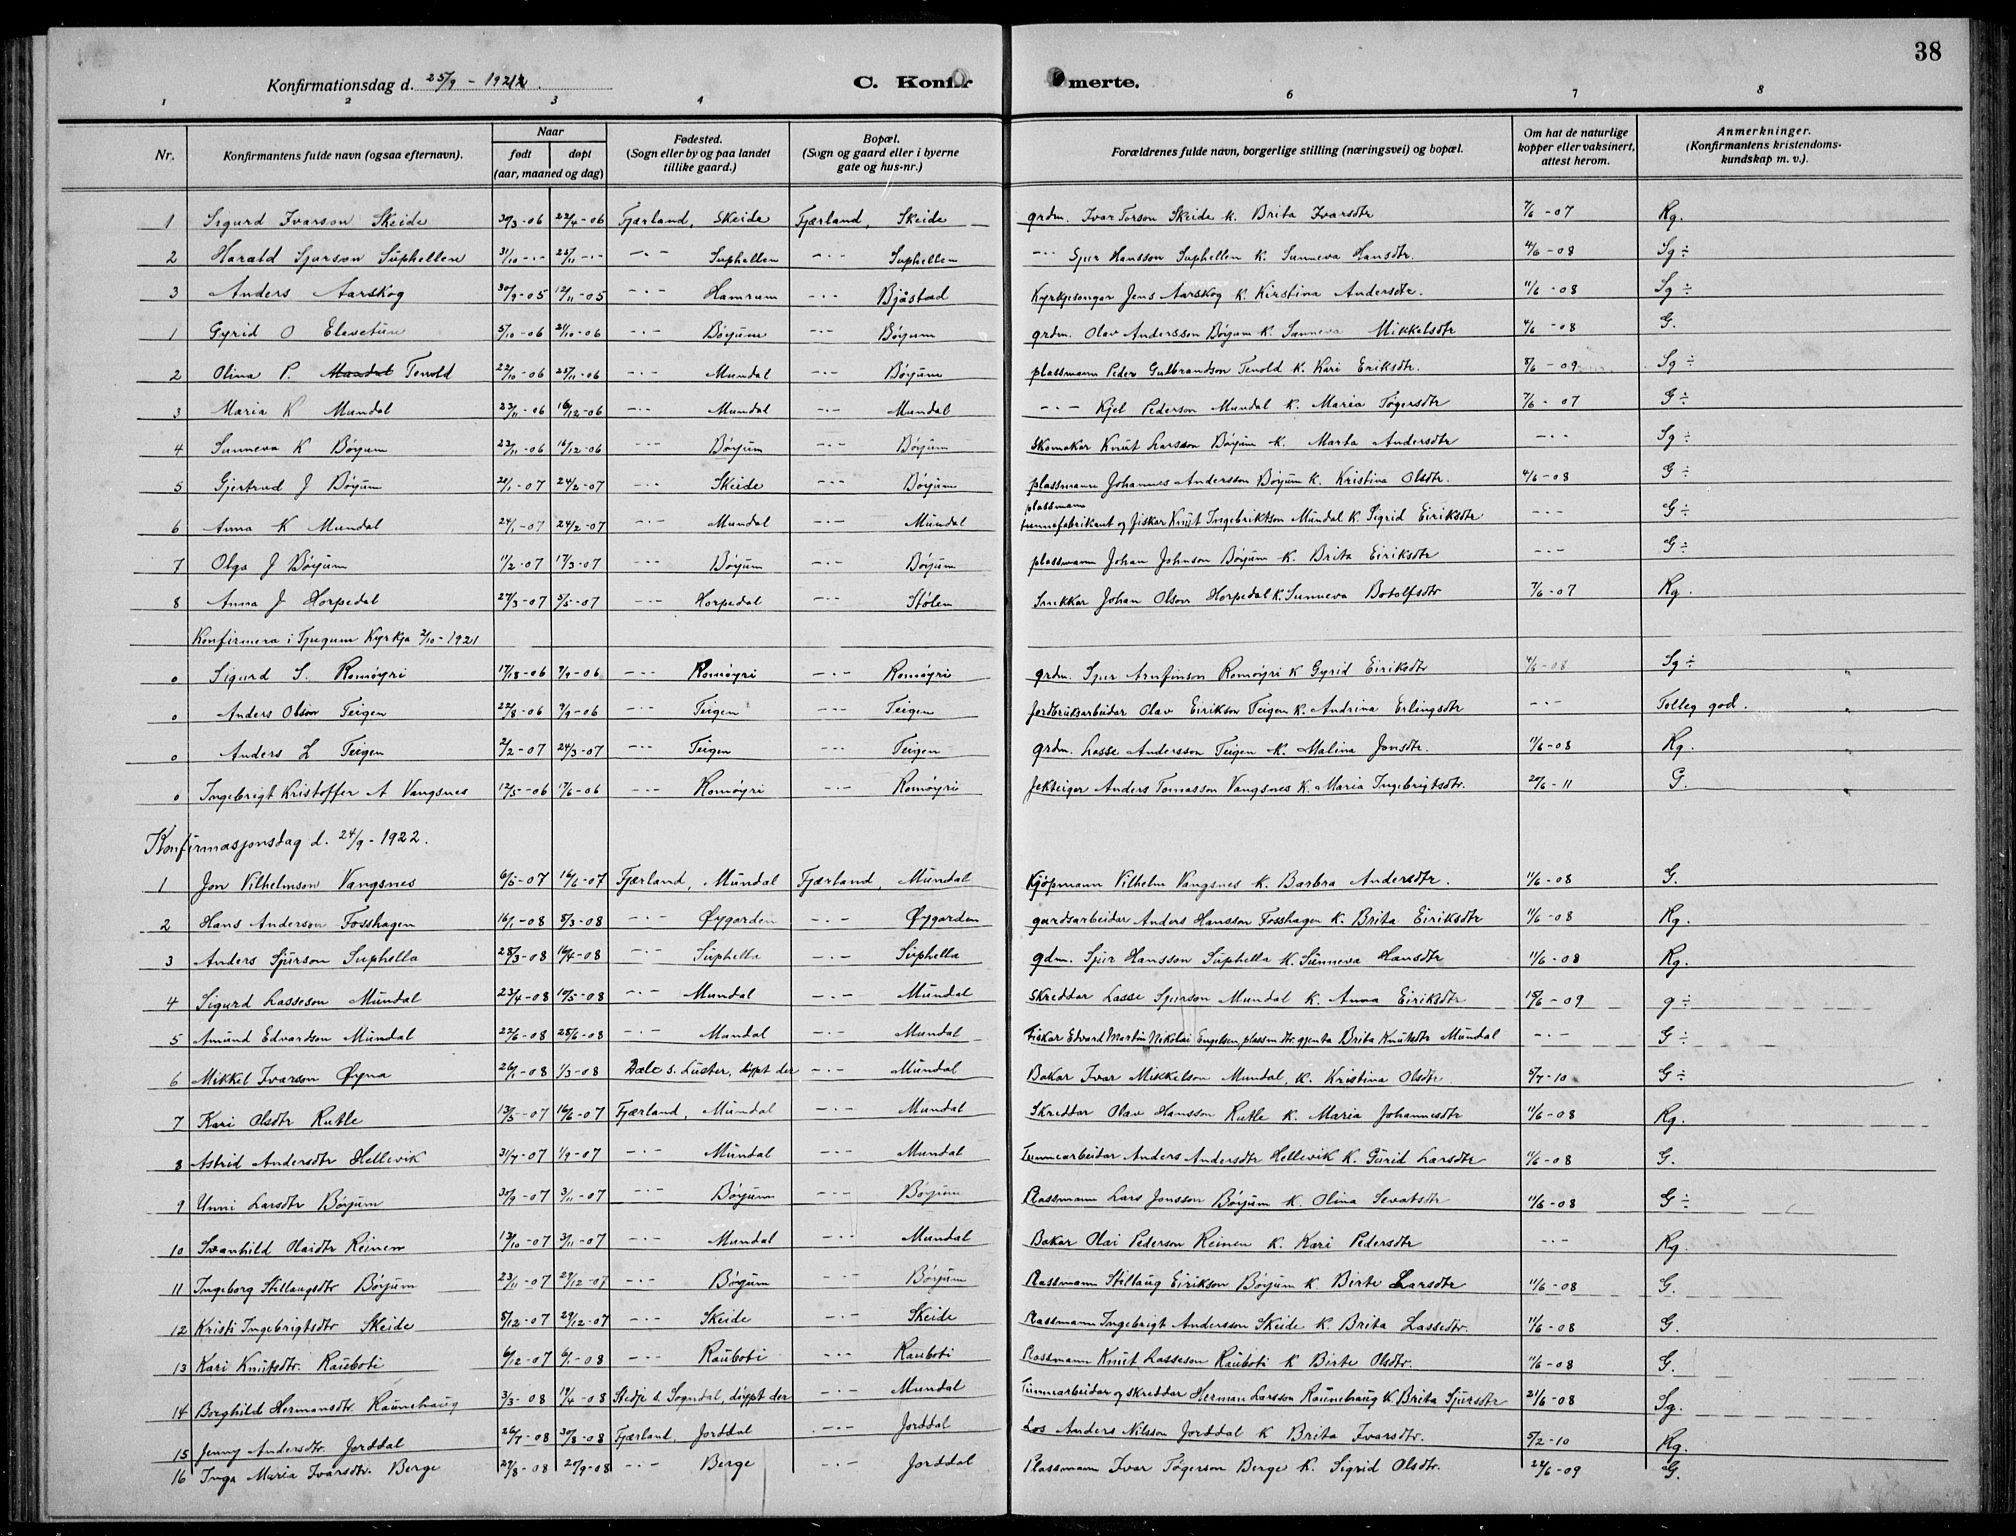 38
Konfirmationsdag d. 25/9 - 1921. C. Konfir merte.
1 2 3 4 6 7 8
Nr. Konfirmantens fulde navn (ogsaa efternavn). Naar født døpt (aar, maaned og dag) Fødested. (Sogn eller by og paa landet tillike gaard.) Bopæl. (Sogn og gaard eller i byerne gate og hus-nr.) Forældrenes fulde navn, borgerlige stilling (næringsvei) og bopæl. Om hat de naturlige kopper eller vaksinert, attest herom. Anmerkninger. (Konfirmantens kristendomskundskap m. v.).
1 Sigurd Ivarson Skeide 30/3-06 22/4-06 Fjærland, Skeide Fjærland, Skeide grdm. Ivar Torson Skeide k. Brita Ivarsdtr 7/6-07 Rg.
2 Harald Sjurson Suphellen 31/10 -·- 25/11 -·- -·- Suphellen -·- Suphellen -·- Sjur Hansson Suphellen k. Sunneva Hansdtr. 4/6-08 Sg ÷
3 Anders Aarskog 30/9-05 12/11-05 -·- Hamrum -·- Bjåstad Kyrkjesongar Jens Aarskog k. Kirstina Andersdtr. 11/6-08 Sg ÷
1 Gyrid O Elvetun 5/10-06 21/10-06 -·- Bøyum -·- Bøyum grdm. Olav Andersson Bøyum k. Sunneva Mikkelsdtr 4/6-08 G.
2 Olina P. Mundal Tenold 22/10-06 25/11-06 -·- Mundal -·- Bøyum plassmann Peder Gulbrandson Tenold k. Kari Eriksdtr. 8/6-09 Sg ÷
3 Maria K Mundal 23/11-06 16/12-06 -·- Mundal -·- Mundal -·- Kjel Pederson Mundal k. Maria Tøgersdtr 7/6-07 G ÷
4 Sunneva K Bøyum 23/11-06 16/12-06 -·- Bøyum -·- Bøyum Skomakar Knut Larsson Bøyum k. Marta Andersdtr -·- Sg ÷
5 Gjertrud J Bøyum 21/1-07 24/2-07 -·- Skeide -·- Bøyum plassmann Johannes Andersson Bøyum k. Kristina Olsdtr. 4/6-08 G ÷
plassmann
6 Anna K Mundal 24/1-07 24/2-07 -·- Mundal -·- Mundal tunnefabrikant og fiskar Knut Ingebriktson Mundal k. Sigrid Eiriksdtr -·- G ÷
7 Olga J Bøyum 11/2-07 17/3-07 -·- Bøyum -·- Bøyum plassmann Johan Johnson Bøyum k. Brita Eiriksdtr -·- G ÷
8 Anna J Horpedal 27/3-07 5/5-07 -·- Horpedal -·- Stølen Snikkar Johan Olson Horpedal k. Sunneva Botolfsdtr 7/6-07 Rg.
Konfirmera i Tjugum Kyrkja 2/10-1921
0 Sigurd S. Romøyri 17/8-06 9/9-06 -·- Romøyri -·- Romøyri grdm. Sjur Arnfinson Romøyri k Gyrid Eiriksdtr 4/6-08 Sg ÷
0 Anders Olson Teigen 22/8-06 9/9-06 -·- Teigen -·- Teigen jordbruksarbeidar Olav Eirikson Teigen k. Andrina Erlingsdtr -·- Tolleg god.
0 Anders L Teigen 2/2-07 24/3-07 -·- Teigen -·- Teigen grdm. Lasse Andersson Teigen k. Malina Jonsdtr. 11/6-08 Rg.
0 Ingebrigt Kristoffer A Vangsnes 12/5-06 17/6-06 -·- Romøyri -·- Romøyri Jekteigar Anders Tomasson Vangsnes k. Maria Ingebrigtsdtr. 20/6-11 G.
Konfirmasjonsdag d. 24/9-1922.
1 Jon Vilhelmson Vangsnes 6/5-07 16/6-07 Fjærland, Mundal Fjærland, Mundal Kjøpmann Vilhelm Vangsnes k. Barbra Andersdtr. 11/6-08 G.
2 Hans Anderson Fosshagen 16/1-08 8/3-08 -·- Øygarden -·- Øygarden gardsarbeidar Anders Hansson Fosshagen k. Brita Eiriksdtr 11/6-08 Rg.
3 Anders Sjurson Suphella 28/3-08 16/4-08 -·- Suphella -·- Suphella gdm. Sjur Hansson Suphella k. Sunneva Hansdtr 11/6-08 Rg.
4 Sigurd Lasseson Mundal 23/4-08 10/5-08 -·- Mundal -·- Mundal Skreddar Lasse Sjurson Mundal k. Anna Eiriksdtr 15/6-09 g ÷
5 Amund Edvardson Mundal 22/6-08 28/6-08 -·- Mundal -·- Mundal Fiskar Edvard Martin Nikolai Engelsen, plassmdtr. gjenta Brita Knutsdtr Mundal -·- G ÷
6 Mikkel Ivarson Øygna 26/1-08 1/3-08 Dale s. Luster, døypt der -·- Mundal Bakar Ivar Mikkelson Mundal, k. Kristina Olsdtr 5/7-10 G ÷
7 Kari Olsdtr Rutle 13/5-07 16/6-07 Fjærland, Mundal -·- Mundal Skreddar Olav Hansson Rutle k. Maria Johannesdtr 11/6-08 Rg.
8 Astrid Andersdtr Hellevik 31/7-07 1/9-07 -·- Mundal -·- Mundal Tunnearbeidar Anders Andersdtr Hellevik k. Gurid Larsdtr 11/6-08 G.
9 Unni Larsdtr Bøyum 30/9-07 3/11-07 -·- Bøyum -·- Bøyum Plassmann Lars Jonsson Bøyum k. Olina Sevatsdtr 11/6-08 G ÷
10 Svanhild Olaidtr Reinen 13/10-07 3/11-07 -·- Mundal -·- Mundal Bakar Olai Pederson Reinen k. Kari Pedersdtr -·- Rg.
11 Ingeborg Stillaugsdtr Bøyum 23/11-07 29/12-07 -·- Bøyum -·- Bøyum Plassmann Stillaug Eirikson Bøyum k. Birte Larsdtr 11/6-08 G.
12 Kristi Ingebrigtsdtr Skeide 8/12-07 29/12-07 -·- Skeide -·- Skeide Plassmann Ingebrigt Andersson Skeide k. Brita Lassedtr. 11/6-08 G.
13 Kari Knutsdtr. Rauboti 6/12-07 6/1-08 -·- Rauboti -·- Rauboti Plassmann Knut Lasseson Rauboti k Birte Olsdtr. 11/6-08 G.
14 Borghild Hermansdtr. Raunehaug 3/3-08 19/4-08 Stedje s. Sogndal, døypt der -·- Mundal Tunnearbeidar og skreddar Herman Larsson Raunehaug k. Brita Sjursdtr 21/6-08 Sg.
15 Jenny Andersdtr. Jorddal 26/7-08 30/8-08 Fjærland, Jorddal -·- Jorddal Los Anders Nilsson Jorddal k Brita Ivarsdtr. 5/2-10 Rg.
16 Inga Maria Ivarsdtr. Berge 29/8-08 20/9-08 -·- Berge -·- Jorddal Plassmann Ivar Tøgerson Berge k. Sigrid Olsdtr. 24/6-09 G.